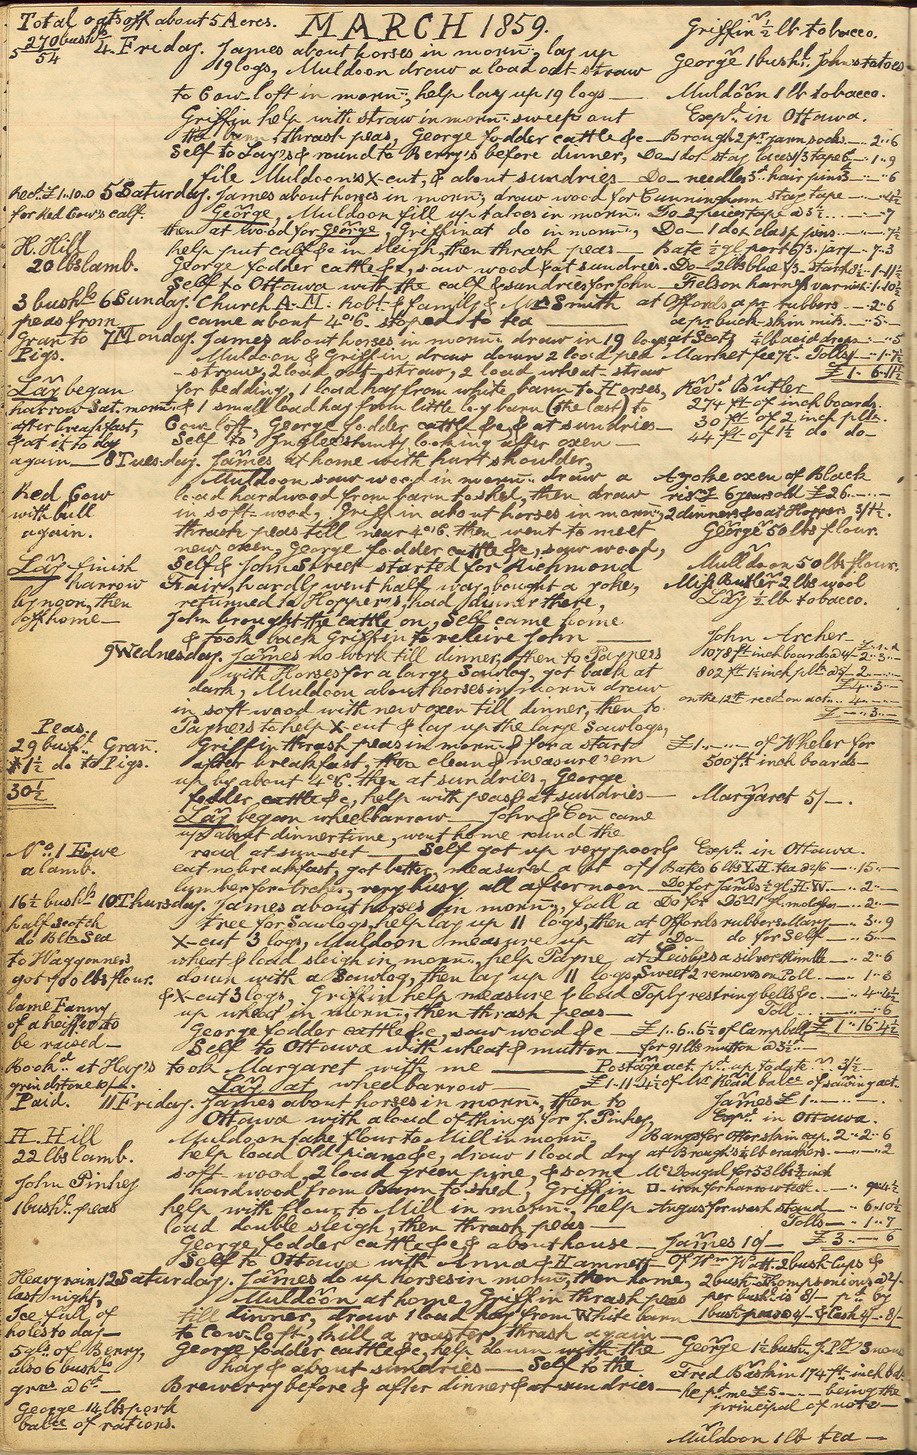 MARCH 1859.
Total oats off about 5 Acres.
270 bushls
5
54
4. Friday. James about horses in mornn:, lay up
19 logs, Muldoon draw a load oat straw
to Cow loft in mornn:, help lay up 19 logs —
Griffin help with straw in mornn: sweep out
the barn, thrash peas, George fodder cattle &c —
Self to Lay's & round to Berry's before dinner,
file Muldoon's X-cut, & about sundries —
Griffin ½ lb tobacco.
George 1 bushl.
Muldoon 1 lb tobacco.
Expn. in Ottawa.
Brough 2 pr. yarn socks — 2"6
Do — needles 3d. hair pins 3d — "6
Recd. £1.10.0
for Red Cow's calf.
H. Hill
20 lbs lamb.
5 Saturday. James about horses in mornn:, draw wood for
George, Muldoon fill up tatoes in mornn:
then at wood for George, Griffin at do in mornn:,
help put calf &c in sleigh, then thrash peas —
George fodder cattle &c, saw wood & at sundries.
Self to Ottawa with the calf & sundries for John —
Cunningham stay tape — 4½
Do 2 pieces tape a 3½ — 7
Do — 1 doz clasp pins — 7½
Bate ½ gl. port 6/3. jar/ — 7"3
3 bushls
peas from
Gran to
Pigs.
6 Sunday. Church A.M: Robt & family & Mr Smith
came about 4 o'C. stoped to tea
at Offords a pr rubbers — 2"6
a pr. buck-skin mits — 5"
7 Monday. James about horses in mornn: draw in 19 logs
Muldoon & Griffin, draw down 2 load pea
straw, 2 load oat straw, 2 load wheat straw
for bedding, 1 load hay from white barn to Horses,
& 1 small load hay from little log barn (the last) to
Cow loft, George fodder cattle &c & at sundries —
Self to Inglee's &c looking after oxen —
at Scots ¼ lb acid drops — 5
Market fee 7½. Tolls — 1"7½
£1"6"11½
Lay began
harrow Sat. mornn:
after breakfast,
& at it to day
again —
Revd. Butler
274 ft of inch boards.
30 ft of 2 inch plk.
44 ft of 1½ do do —
8 Tuesday. James at home with hurt shoulder,
Muldoon saw wood in mornn: draw a
load hardwood from barn to shed, then draw
in soft-wood, Griffin about horses in mornn:,
thrash peas till near 4 o'C. then went to meet
new oxen, George fodder cattle &c, saw wood,
Self & John Street started for Richmond
Fair, hardly went half way, bought a yoke,
returned to Hopper's, had dinner there,
John brought the cattle on, Self came home
& took back Griffin to relieve John
Red Cow
with bull
again.
Lay finish
harrow
by noon, then
off home —
A yoke oxen of Black
6 years old £26
2 dinners &c at Hoppers 3/1½.
George 50 lbs flour.
Muldoon 50 lbs flour.
Miss Butler 2 lbs wool
Lay ½ lb tobacco.
9 Wednesday. James no work till dinner, then to Payne's
with Horses for a large Sawlog, got back at
dark, Muldoon about horses in mornn: draw
in soft-wood with new oxen till dinner, then to
Payne's to help X-cut & lay up the large Sawlogs,
Griffin thrash peas in mornn: & for a start
after breakfast, then clean & measure 'em
up by about 4 o'C. then at sundries, George
fodder cattle &c, help with peas & at sundries —
Lay began wheelbarrow — John & Con came
up about dinner time, went home round the
road at sun-set — Self got up very poorly
eat no breakfast, got better, measured a lot of
lumber for Archer, very busy all afternoon
Peas.
29 bushl. Gran.
1½ do to Pigs.
30½
No. 1 Ewe
a lamb.
John Archer
on the 12th recd on acct. 4
£1 — of Wheler for
500 ft. inch boards —
Margaret 5/ —.
Expn. in Ottawa.
16½ bushls
half scotch
do Blk Sea
to Waggoners
got 900 lbs flour.
lame Fanny
of a heiffer to
be raised —
at Hay's
grindstone
Paid.
10 Thursday. James about horses in mornn:, fall a
tree for Sawlogs, help lay up 11 logs, then
X-cut 3 logs, Muldoon measure up
wheat & load sleigh in mornn:, help Payne
down with a Sawlog, then lay up 11 logs
& X-cut 3 logs, Griffin help measure & load
up wheat in mornn:, then thrash peas —
George fodder cattle &c, saw wood &c —
Self to Ottawa with wheat & mutton —
took Margaret with me
Lay at wheelbarrow —
at Offords rubbers Mary — 3"9
at Do — do for Self — 5"
at Leslie's a silver thimble — 2"6
Sweet 2 removes on Poll — 1"3
Toply restring bells &c. — 4"4½
Toll — 6
£1"16"4½
£1"6"6½ of Campbell
for 91 lbs mutton a 3½d
James £1 —
11 Friday. James about horses in mornn:, then to
Ottawa with a load of things for J. Pinkey,
Muldoon take flour to Mill in mornn:,
help load Old piano &c, draw 1 load dry
soft wood, 2 load green pine, & some
hardwood from Barn to shed, Griffin
help with flour to Mill in mornn:, help
load double sleigh, then thrash peas —
George fodder cattle &c & about house —
Self to Ottawa with Anna & Hamnett —
H. Hill
22 lbs lamb.
John Pinkey
1 bushl. peas
Expn. in Ottawa.
Bangs for Otter skin cap, 2"2"6
at Brough's ½ lb crackers — 2
McDougal for 53 lbs ¾ inch
□. iron for harrow teeth
Angus for wash stand — 6"10½
Tolls — 1"7
£3"6
James 10/ —
12 Saturday. James do up horses in mornn:, then home,
Muldoon at home, Griffin thrash peas
till dinner, draw 1 load hay from White barn
to Cow-loft, kill a rooster, thrash again —
George fodder cattle &c, help down with the
hay & about sundries — Self to the
Brewerry before & after dinner & at sundries —
Heavy rain
last night,
Ice full of
holes to day —
5 gls. of Berry,
also 6 bushls
grns a 6d —
George 14 lbs pork
balce of rations.
Of Wm Watt. 2 bush. Cups &
2 bush. Thompsonions a 2/-
per bush. is 8/- pd. by
1 bush. pease 4/- & Cash 4/- 8/-
George 1½ bush.
Fred Baskin 174 ft. inch bds.
he pd. me £5 — being the
principal of note —
Muldoon 1 lb tea —